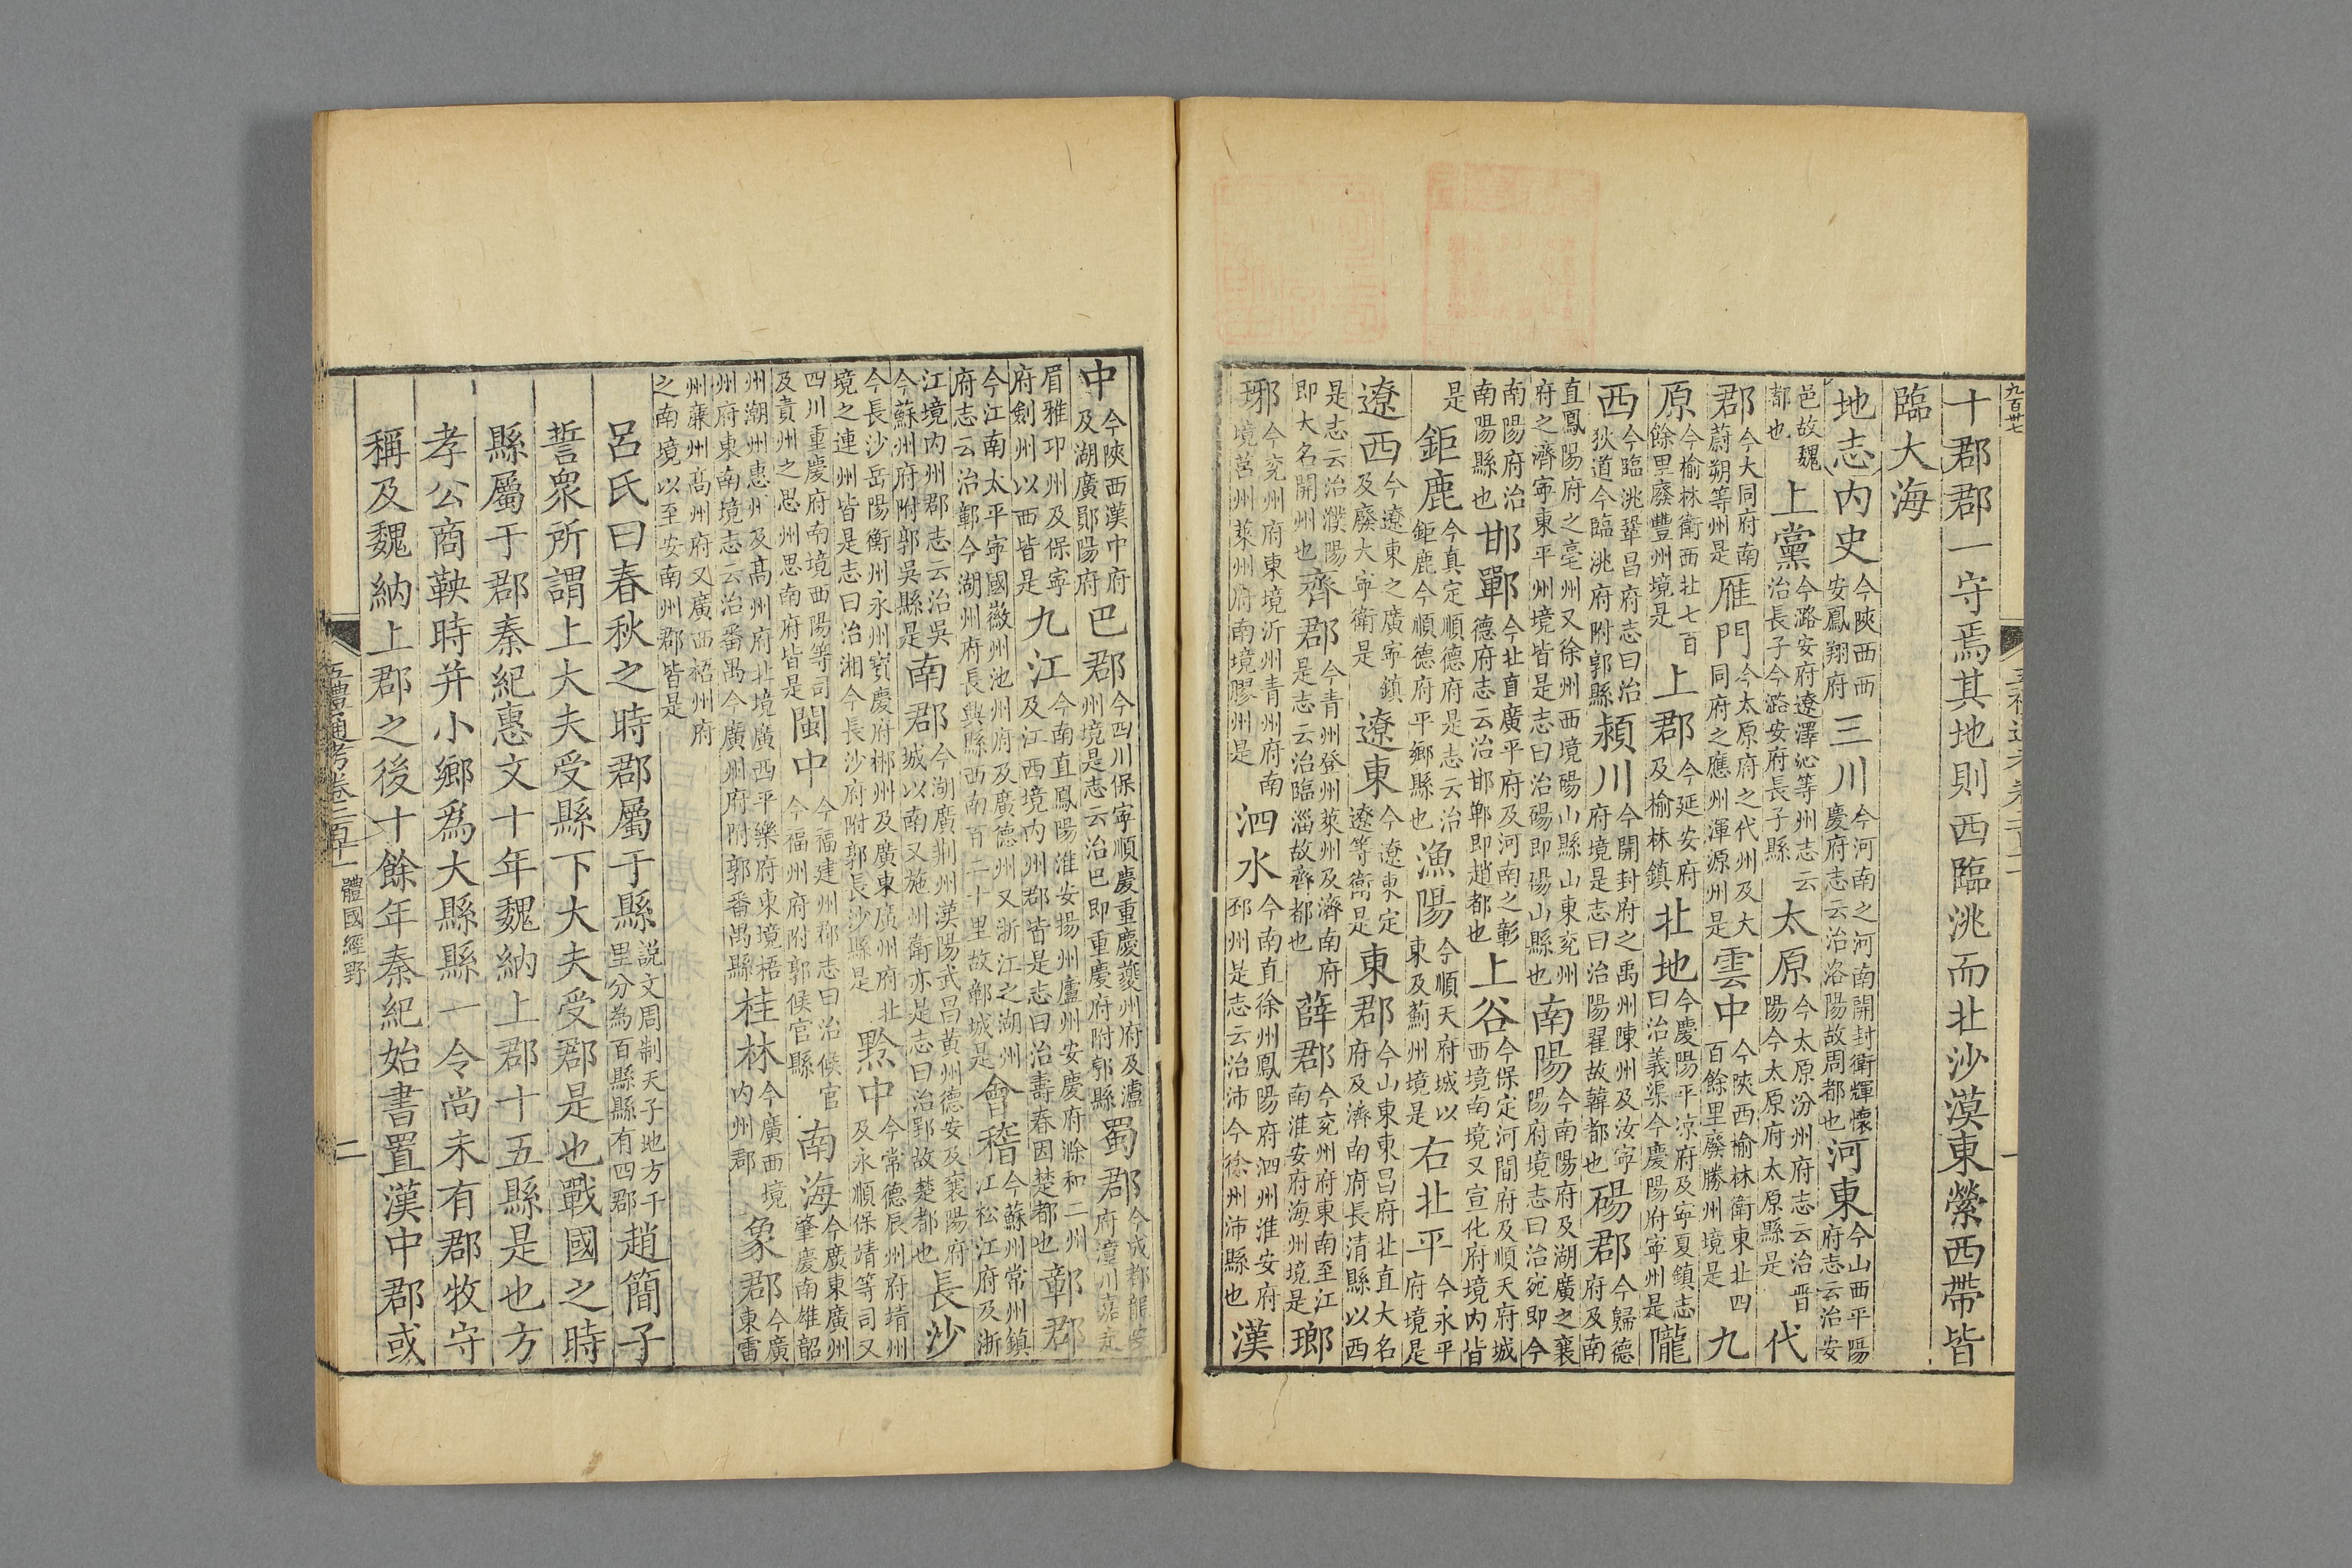 九百卅七
十郡郡一守焉其地則西臨洮而北沙漠東縈西帶皆
臨大海
地志内史今陝西西安鳳翔府三川今河南之河南開封衛輝懷慶府志云治洛陽故周都也河東今山西平陽府志云治安
邑故魏都也上黨今潞安府遼澤沁等州志云治長子今潞安府長子縣太原今太原汾州府志云治晋陽今太原府太原縣是代
郡今大同府南蔚朔等州是雁門今太原府之代州及大同府之應州渾源州是雲中今陝西榆林衛東北四百餘里廢勝州境是九
原今榆林衛西北七百餘里廢豐州境是上郡今延安府及榆林鎮北地今慶陽平凉府及寧夏鎮志曰治義渠今慶陽府寧州是隴
西今臨洮鞏昌府志曰治狄道今臨洮府附郭縣潁川今開封府之禹州陳州及汝寧府境是志曰治陽翟故韓都也碭郡今歸德府及南
直鳳陽府之亳州又徐州西境碭山縣山東兖州府之濟寧東平州境皆是志曰治碭即碭山縣也南陽今南陽府及湖廣之襄陽府境志曰治宛即今
南陽府治南陽縣也邯鄲今北直廣平府及河南之彰德府志云治邯鄲即趙都也上谷今保定河間府及順天府城西境南境又宣化府境内皆
是鉅鹿今真定順德府是志云治鉅鹿今順德府平鄉縣也漁陽今順天府城以東及薊州境是右北平今永平府境是
遼西今遼東之廣寧鎮及廢大寧衛是遼東今遼東定遼等衛是東郡今山東東昌府北直大名府及濟南府長清縣以西
是志云治濮陽即大名開州也齊郡今青州登州萊州及濟南府是志云治臨淄故齊都也薛郡今兖州府東南至江南淮安府海州境是瑯
琊今兖州府東境沂州青州府南境莒州萊州府南境膠州是泗水今南直徐州鳳陽府泗州淮安府邳州是志云治沛今徐州沛縣也漢
中今陝西漢中府及湖廣鄖陽府巴郡今四川保寧順慶重慶夔州府及瀘州境是志云治巴即重慶府附郭縣蜀郡今成都龍安府潼川嘉定
眉雅卭州及保寧府劍州以西皆是九江今南直鳳陽淮安揚州廬州安慶府滁和二州及江西境内州郡皆是志曰治壽春因楚都也鄣郡
今江南太平寧國徽州池州府及廣德州又浙江之湖州府志云治鄣今湖州府長興縣西南百二十里故鄣城是會稽今蘇州常州鎮江松江府及浙
江境内州郡志云治吳今蘇州府附郭吳縣是南郡今湖廣荆州漢陽武昌黄州德安及襄陽府城以南又施州衛亦是志曰治郢故楚都也長沙
今長沙岳陽衡州永州寶慶府郴州及廣東廣州府北境之連州皆是志曰治湘今長沙府附郭長沙縣是黔中今常德辰州府靖州及永順保靖等司又
四川重慶府南境酉陽等司及貴州之思州思南府皆是閩中今福建州郡志曰治候官今福州府附郭候官縣南海今廣東廣州肇慶南雄韶
州潮州惠州及高州府北境廣西平樂府東境梧州府東南境志云治番禺今廣州府附郭番禺縣桂林今廣西境内州郡象郡今廣東雷
州廉州高州府又廣西梧州府之南境以至安南州郡皆是
呂氏曰春秋之時郡屬于縣説文周制天子地方千里分為百縣縣有四郡趙簡子
誓衆所謂上大夫受縣下大夫受郡是也戰國之時
縣屬于郡秦紀惠文十年魏納上郡十五縣是也方
孝公商鞅時并小鄉爲大縣縣一令尚未有郡牧守
稱及魏納上郡之後十餘年秦紀始書置漢中郡或
五禮通考卷二百十一 體國經野 二